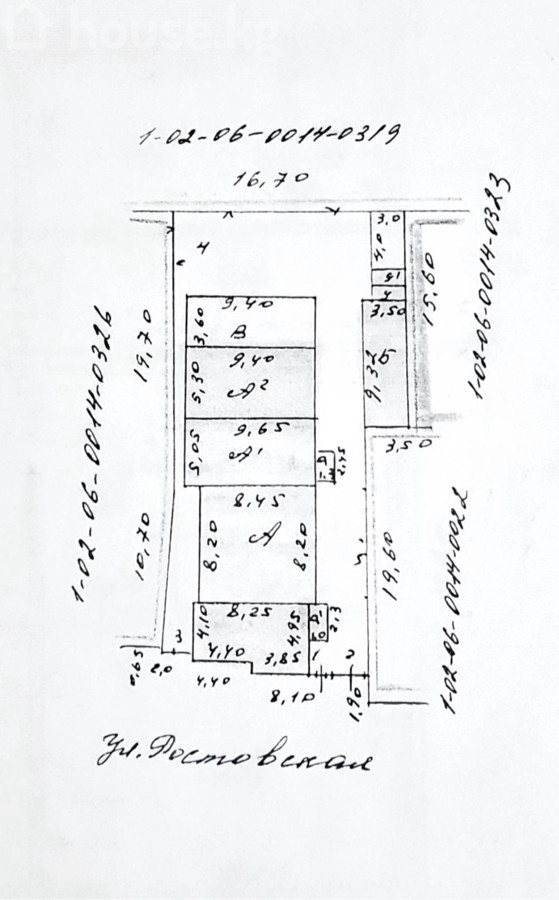 house.kg
1-02-06-0014-0319
16,70
1-02-06-0014-0323
15,60
1-02-06-0014-0326
19,70
10,70
3,0
4,0
4
9,40
3,60
В
9,40
5,30
А²
9,65
5,05
А¹
2,45
3,50
9,32
Б
3,50
8,45
8,20
А
8,20
19,60
1-02-06-0014-0022
8,25
4,10
4,95
4,40
3,85
2,3
3
1
2
0,65
2,0
4,40
8,10
1,90
Ул. Ростовская